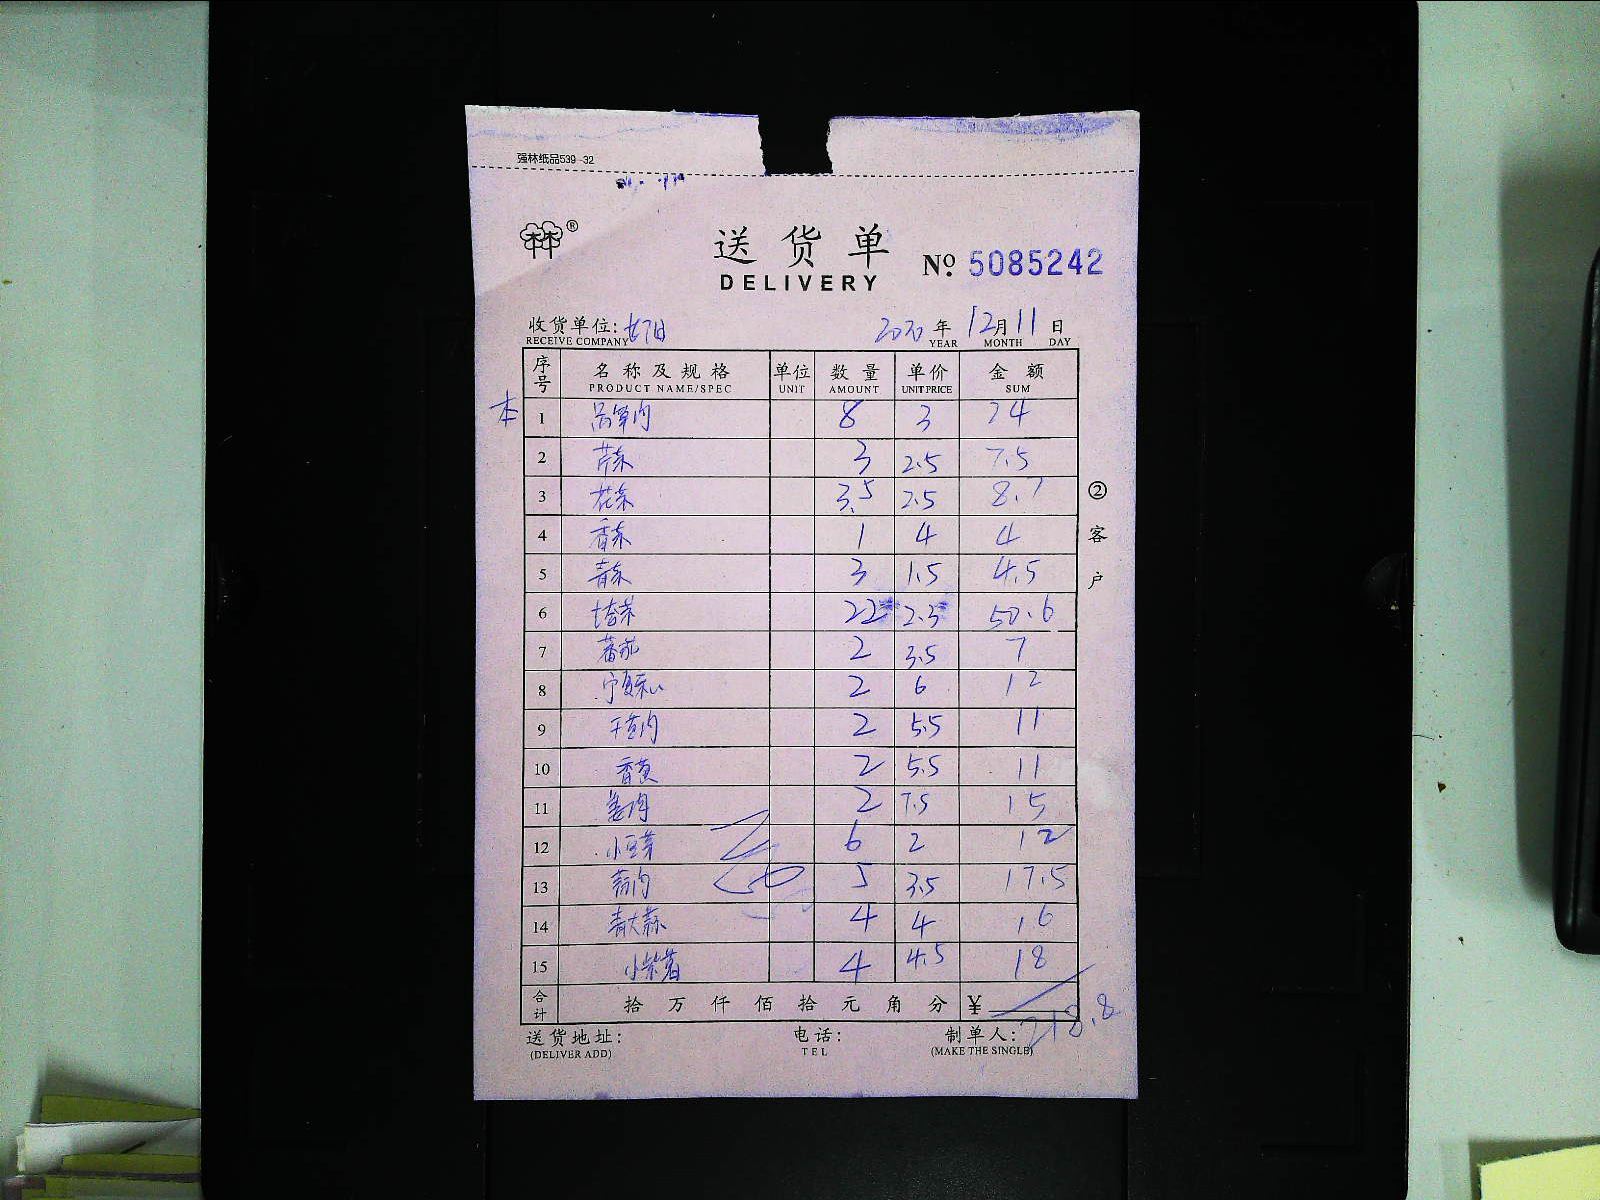 强林纸品539-32
林®
送货单
DELIVERY
No. 5085242
收货单位:
RECEIVE COMPANY
2020年12月11日
YEAR MONTH DAY
序号 名称及规格 单位 数量 单价 金额
PRODUCT NAME/SPEC UNIT AMOUNT UNIT PRICE SUM
本 1 莴笋肉 8 3 24
2 芹菜 3 2.5 7.5
3 花菜 3.5 2.5 8.7
4 香菜 1 4 4
5 青菜 3 1.5 4.5
6 22 2.3 50.6
7 蕃茄 2 3.5 7
8 宁夏菜心 2 6 12
9 2 5.5 11
10 香 2 5.5 11
11 姜肉 2 7.5 15
12 小豆芽 6 2 12
13 蒜肉 5 3.5 17.5
14 青大蒜 4 4 16
15 小紫薯 4 4.5 18
合计 拾万仟佰拾元角分 ¥ 218.8
送货地址: 电话: 制单人:
(DELIVER ADD) TEL (MAKE THE SINGLE)
②客户